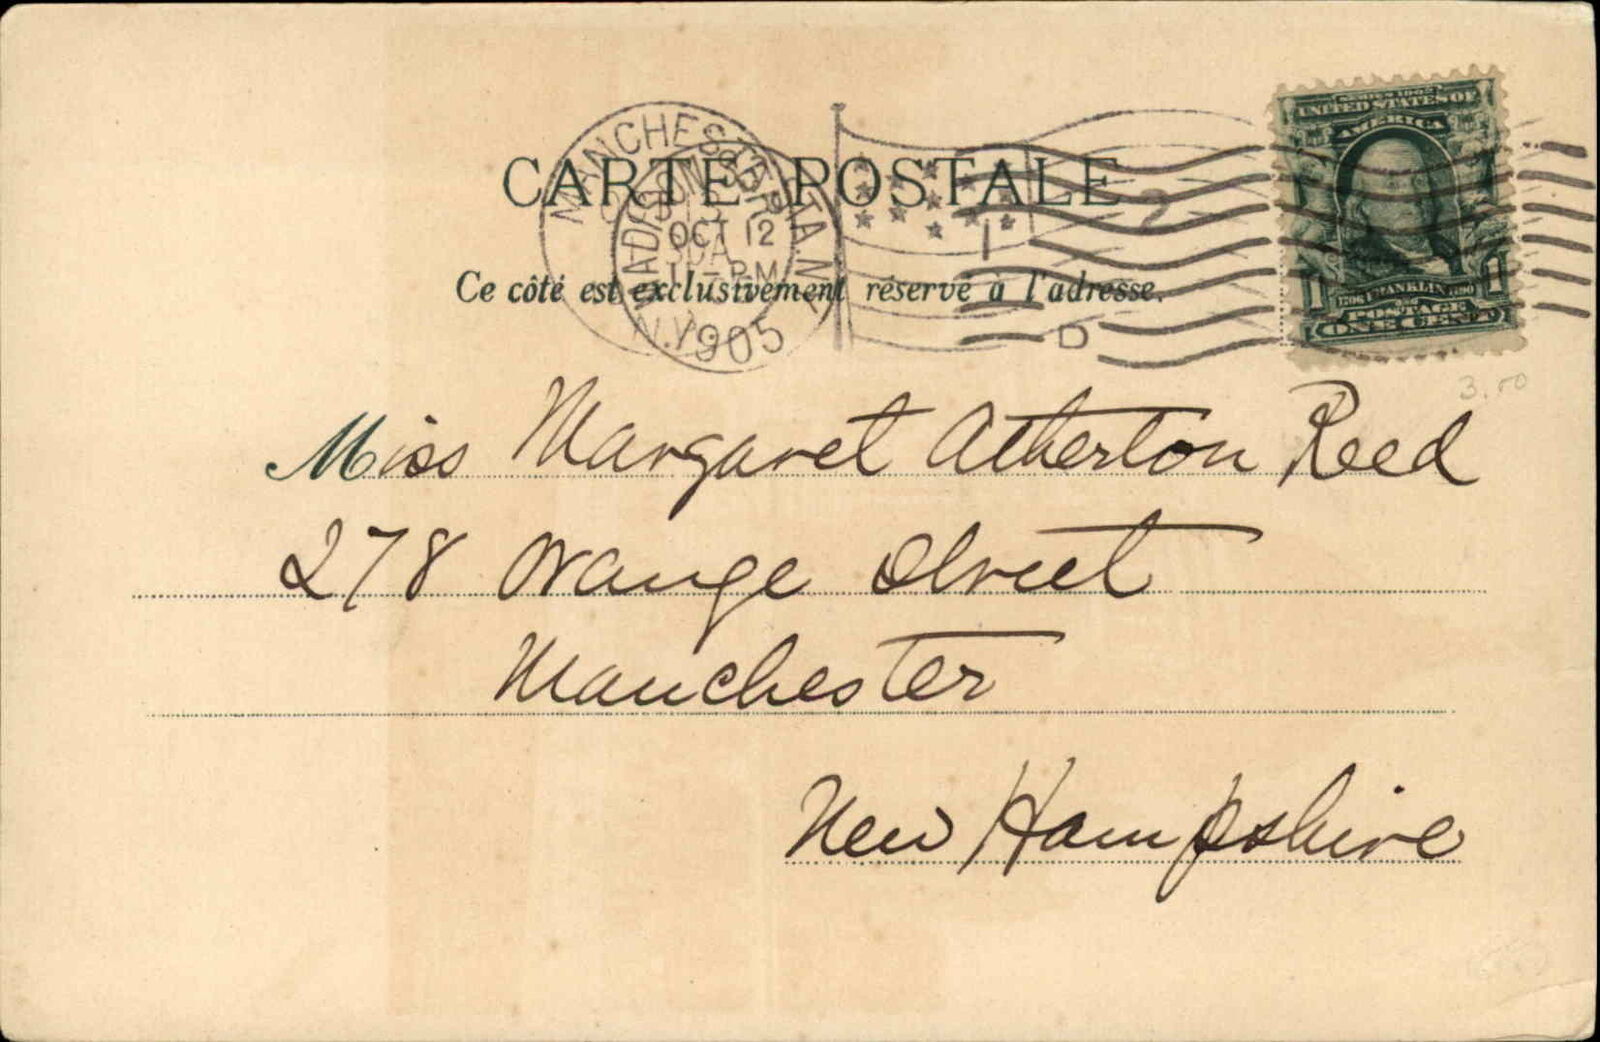 CARTE POSTALE
Ce côté est exclusivement réservé à l'adresse.
MANCHESTER
MADISON SQ.
OCT 12
11-PM
N.Y. 1905
1
D
SERIES 1902
UNITED STATES OF
AMERICA
1 1
1706 FRANKLIN 1790
POSTAGE
ONE CENT
3.00
Miss Margaret Atherton Reed
278 Orange Street
Manchester
New Hampshire